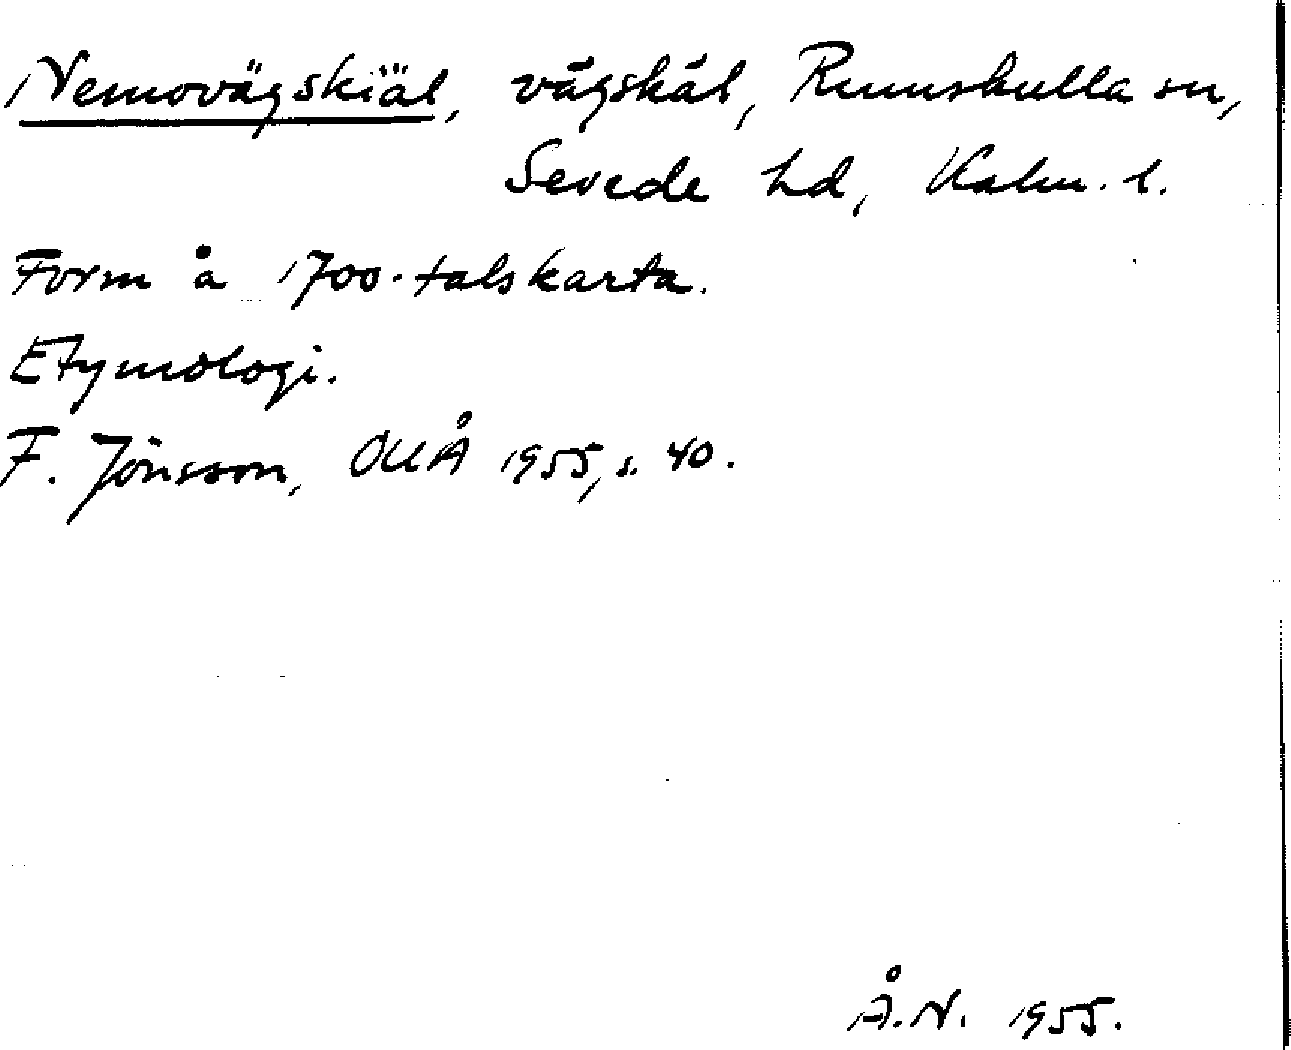 Nemovägskiäl, vägskäl, Rumskulla sn,
Sevede hd, Kalm. l.
Form å 1700-talskarta.
Etymologi.
F. Jönsson, OUÅ 1955, s. 40.
Å.N. 1955.